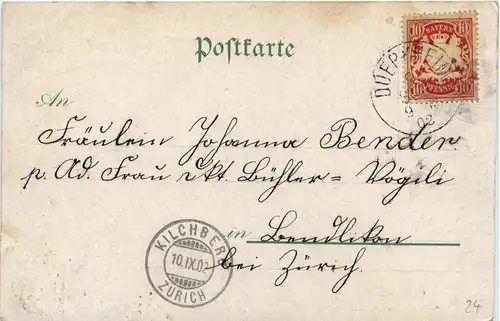 Postkarte
BAYERN
10 10
PFENNIG
10 10
9
02
An
Fräulein Johanna Bender.
p. Ad. Frau Dkt. Bühler=Vögeli
in Bendlikon
bei Zürich.
KILCHBERG
10.IX.02
ZÜRICH
24